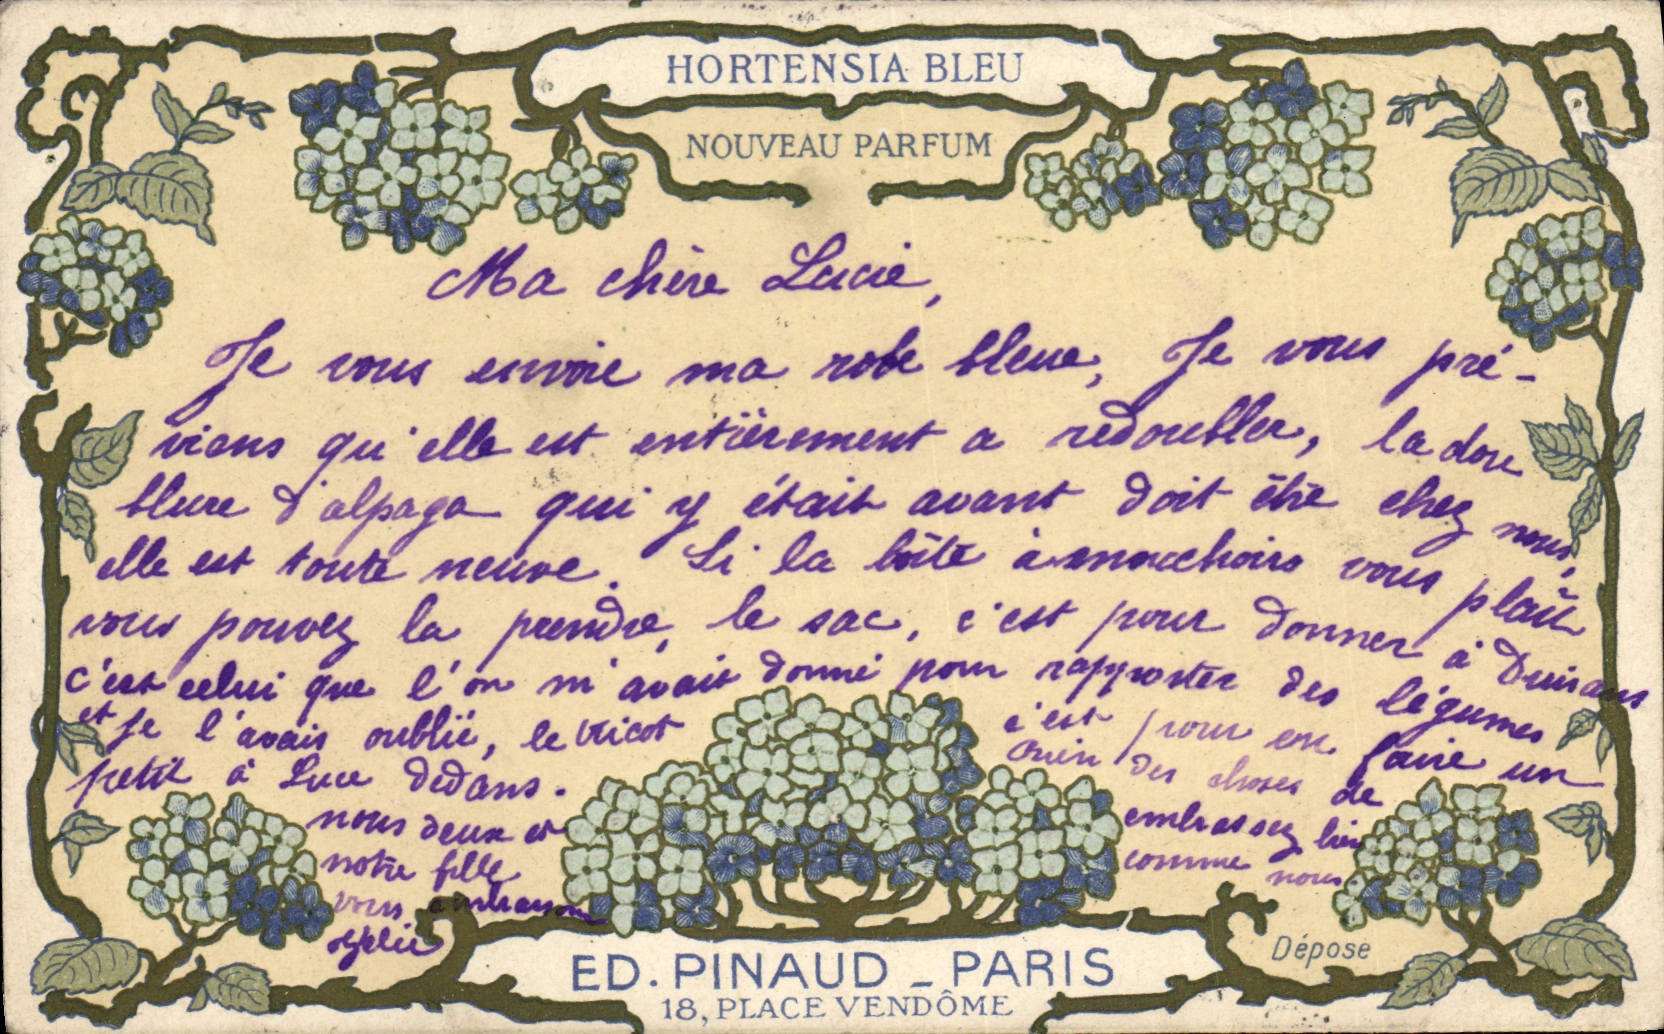 HORTENSIA BLEU
NOUVEAU PARFUM
Ma chère Lucie,
Je vous envoie ma robe bleue, Je vous pré-
viens qu'elle est entièrement a redoubler, la dou
blure d'alpaga qui y était avant doit être chez nous,
elle est toute neuve. Si la boîte à mouchoirs vous plaît
vous pouvez la prendre, le sac, c'est pour donner à Duisans
c'est celui que l'on m'avait donné pour rapporter des légumes
et Je l'avais oublié, le tricot c'est pour en faire un
petit à Luce dedans. des choses de
nous deux et embrassez bien
notre fille comme nous
vous embrassons
ED. PINAUD _ PARIS
18, PLACE VENDÔME
Dépose